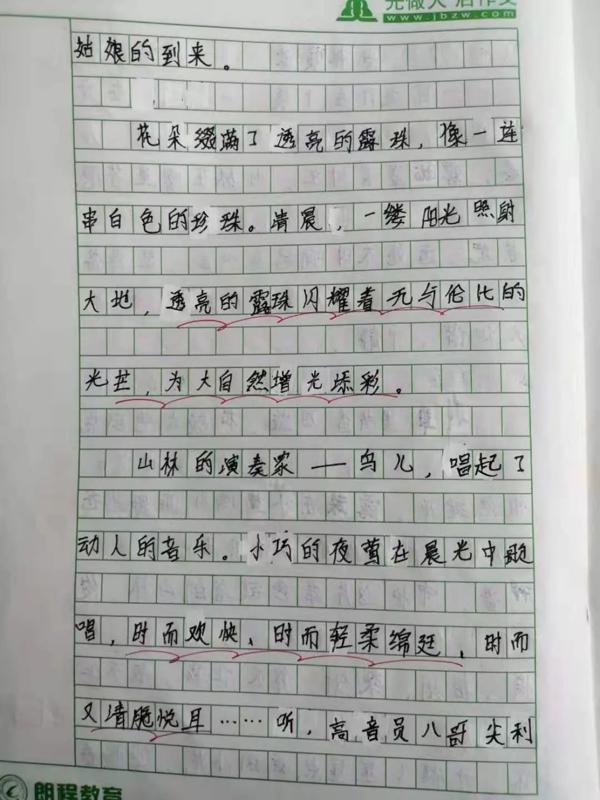 先做人 后作文
www.jbzw.com
姑娘的到来。
花朵缀满了透亮的露珠，像一连
串白色的珍珠。清晨，一缕阳光照射
大地，透亮的露珠闪耀着无与伦比的
光芒，为大自然增光添彩。
山林的演奏家——鸟儿，唱起了
动人的音乐。小巧的夜莺在晨光中歌
唱，时而欢快、时而轻柔绵廷，时而
又清脆悦耳……听，高音员八哥尖利
朗程教育